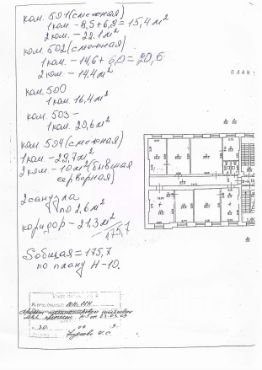 ком. 501 (смежная)
1 ком. - 8,5+6,9 = 15,4 м²
2 ком. - 22.1 м²
ком. 502 (смежная)
1 ком. - 14,6 + 6,0 = 20,6
2 ком - 14,4 м²
ком. 500
1 ком. 16,4 м²
ком. 503 -
1 ком. 20,6 м²
ком. 504 (смежная)
1 ком. - 29,7 м²
2 ком - 10 м² (бывшая
серверная)
2 санузла
по 2,6 м²
коридор - 21,3 м²
175,7
Sобщая = 175,7
по плану Н-10.